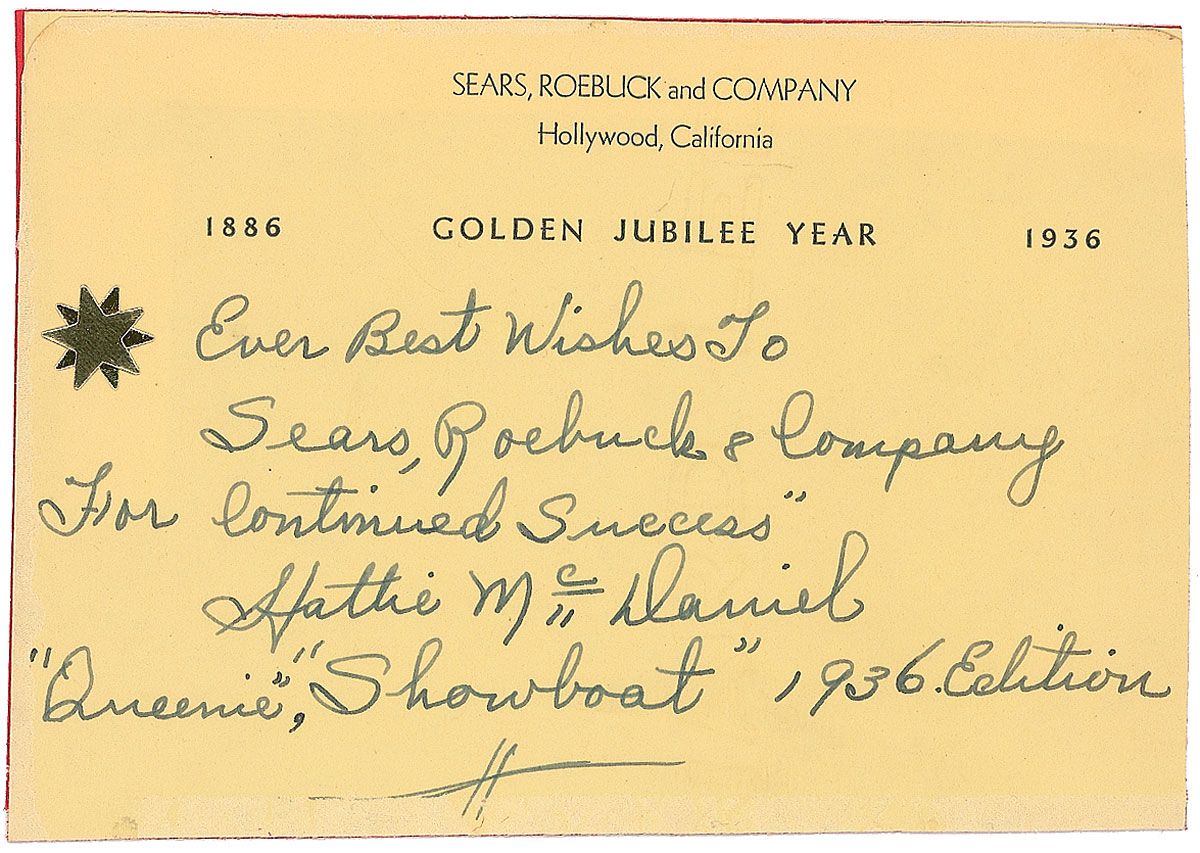 SEARS, ROEBUCK and COMPANY
Hollywood, California
1886 GOLDEN JUBILEE YEAR 1936
Ever Best Wishes To
Sears, Roebuck & Company
For Continued Success"
Hattie Mc Daniel
"Queenie", "Showboat" 1936. Edition